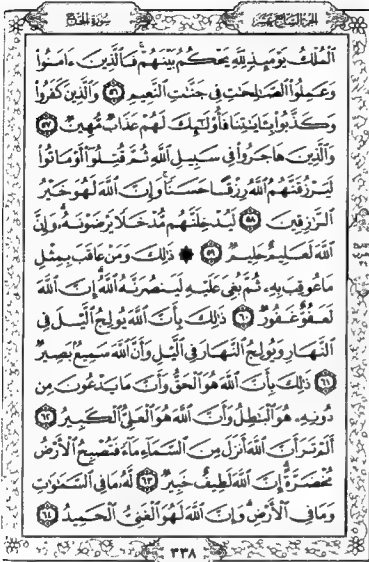 الجزء السابع عشر
سورة الحج
ٱلْمُلْكُ يَوْمَئِذٍ لِّلَّهِ يَحْكُمُ بَيْنَهُمْ ۚ فَٱلَّذِينَ ءَامَنُوا۟
وَعَمِلُوا۟ ٱلصَّٰلِحَٰتِ فِى جَنَّٰتِ ٱلنَّعِيمِ ٥٦ وَٱلَّذِينَ كَفَرُوا۟
وَكَذَّبُوا۟ بِـَٔايَٰتِنَا فَأُو۟لَٰٓئِكَ لَهُمْ عَذَابٌ مُّهِينٌ ٥٧
وَٱلَّذِينَ هَاجَرُوا۟ فِى سَبِيلِ ٱللَّهِ ثُمَّ قُتِلُوٓا۟ أَوْ مَاتُوا۟
لَيَرْزُقَنَّهُمُ ٱللَّهُ رِزْقًا حَسَنًا ۚ وَإِنَّ ٱللَّهَ لَهُوَ خَيْرُ
ٱلرَّٰزِقِينَ ٥٨ لَيُدْخِلَنَّهُم مُّدْخَلًا يَرْضَوْنَهُۥ ۗ وَإِنَّ
ٱللَّهَ لَعَلِيمٌ حَلِيمٌ ٥٩ ۞ ذَٰلِكَ وَمَنْ عَاقَبَ بِمِثْلِ
مَا عُوقِبَ بِهِۦ ثُمَّ بُغِىَ عَلَيْهِ لَيَنصُرَنَّهُ ٱللَّهُ ۗ إِنَّ ٱللَّهَ
لَعَفُوٌّ غَفُورٌ ٦٠ ذَٰلِكَ بِأَنَّ ٱللَّهَ يُولِجُ ٱلَّيْلَ فِى
ٱلنَّهَارِ وَيُولِجُ ٱلنَّهَارَ فِى ٱلَّيْلِ وَأَنَّ ٱللَّهَ سَمِيعٌۢ بَصِيرٌ
٦١ ذَٰلِكَ بِأَنَّ ٱللَّهَ هُوَ ٱلْحَقُّ وَأَنَّ مَا يَدْعُونَ مِن
دُونِهِۦ هُوَ ٱلْبَٰطِلُ وَأَنَّ ٱللَّهَ هُوَ ٱلْعَلِىُّ ٱلْكَبِيرُ ٦٢
أَلَمْ تَرَ أَنَّ ٱللَّهَ أَنزَلَ مِنَ ٱلسَّمَآءِ مَآءً فَتُصْبِحُ ٱلْأَرْضُ
مُخْضَرَّةً ۗ إِنَّ ٱللَّهَ لَطِيفٌ خَبِيرٌ ٦٣ لَّهُۥ مَا فِى ٱلسَّمَٰوَٰتِ
وَمَا فِى ٱلْأَرْضِ ۗ وَإِنَّ ٱللَّهَ لَهُوَ ٱلْغَنِىُّ ٱلْحَمِيدُ ٦٤
٣٣٨